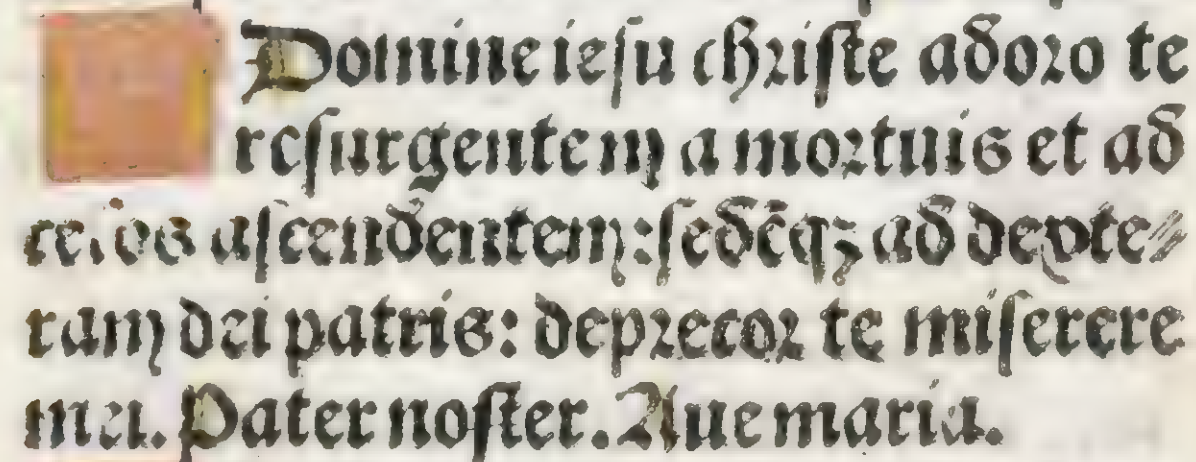 Domine ieſu chriſte adoro te
reſurgentem a mortuis et ad
celos aſcendentem: ſedēqꝫ ad dexte⸗
ram dei patris: deprecor te miſerere
mei. Pater noſter. Aue maria.